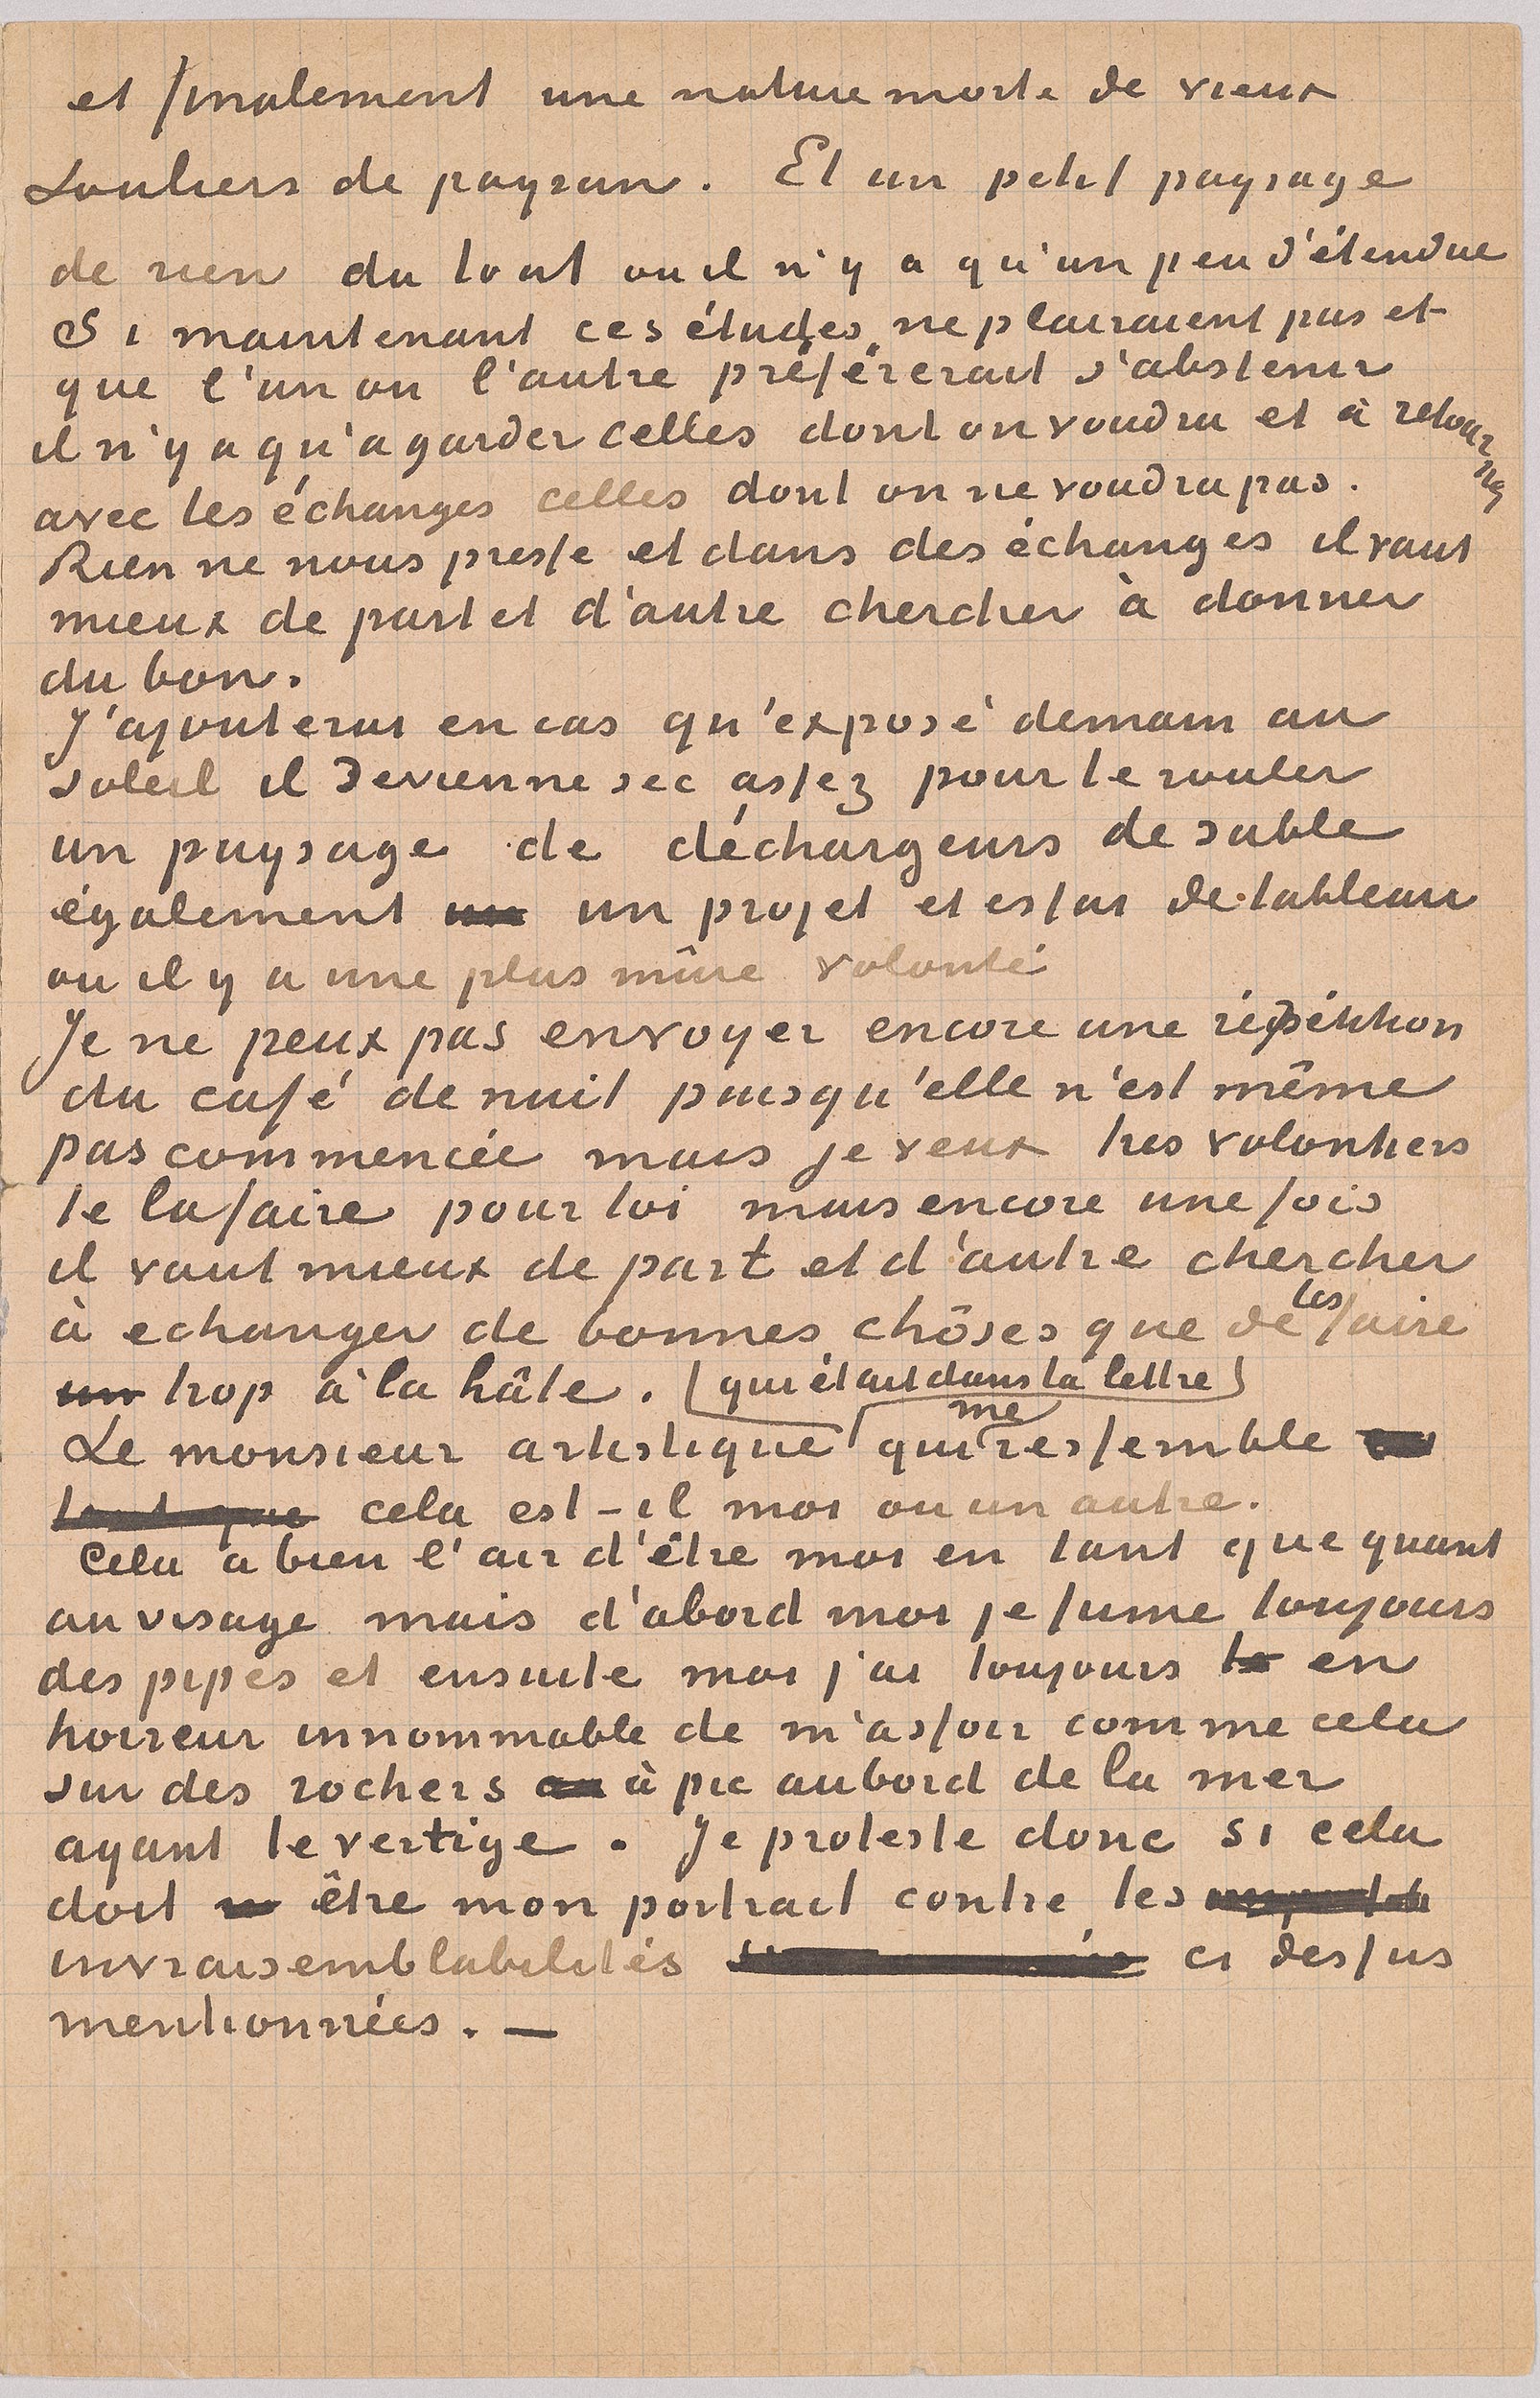 et finalement une nature morte de vieux
souliers de paysan. Et un petit paysage
de rien du tout ou il n'y a qu'un peu d'étendue
Si maintenant ces études ne plairaient pas et
que l'un ou l'autre préférerait s'abstenir
il n'y a qu'a garder celles dont on voudra et à retourner
avec les échanges celles dont on ne voudra pas.
Rien ne nous presse et dans des échanges il vaut
mieux de part et d'autre chercher à donner
du bon.
J'ajouterai en cas qu'exposé demain au
soleil il devienne sec assez pour le rouler
un paysage de déchargeurs de sable
également un projet et essai de tableau
ou il y a une plus mûre volonté
Je ne peux pas envoyer encore une répétition
du café de nuit puisqu'elle n'est même
pas commencée mais je veux tres volontiers
te la faire pour toi mais encore une fois
il vaut mieux de part et d'autre chercher
à echanger de bonnes chôses que de les faire
un trop à la hâte. (qui était dans ta lettre)
Le monsieur artistique qui me ressemble
tant que cela est-il moi ou un autre.
Cela a bien l'air d'être moi en tant que quant
au visage mais d'abord moi je fume toujours
des pipes et ensuite moi j'ai toujours en
horreur innommable de m'assoir comme cela
sur des rochers à pic au bord de la mer
ayant le vertige. Je proteste donc si cela
doit être mon portrait contre les
invraisemblabilités ci dessus
mentionnées. —